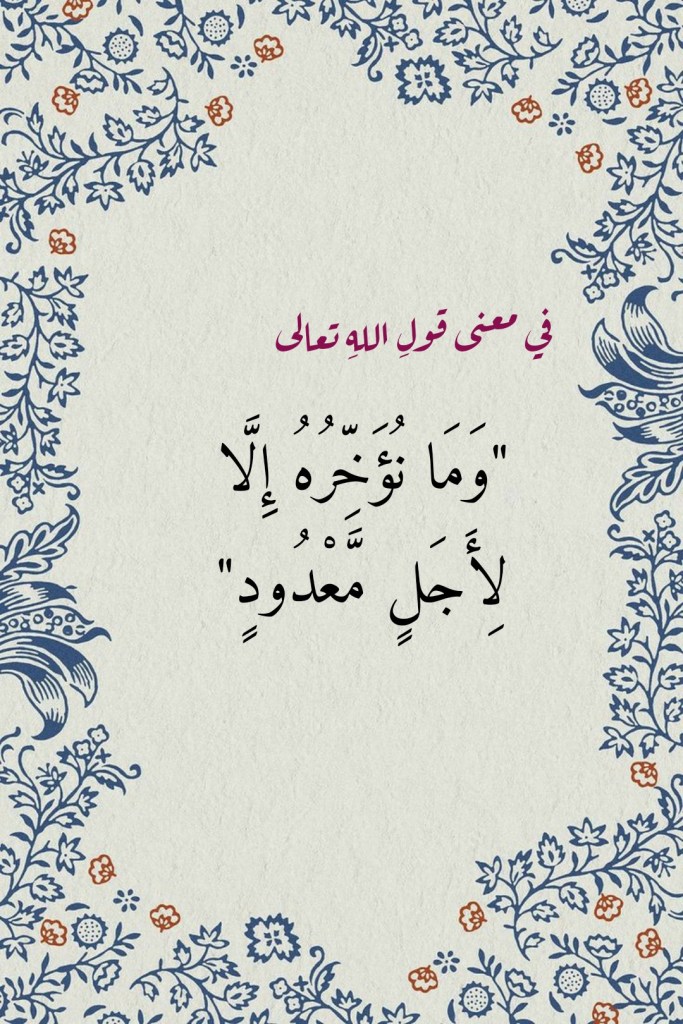 في معنى قولِ اللهِ تعالى
"وَمَا نُؤَخِّرُهُ إِلَّا
لِأَجَلٍ مَّعْدُودٍ"